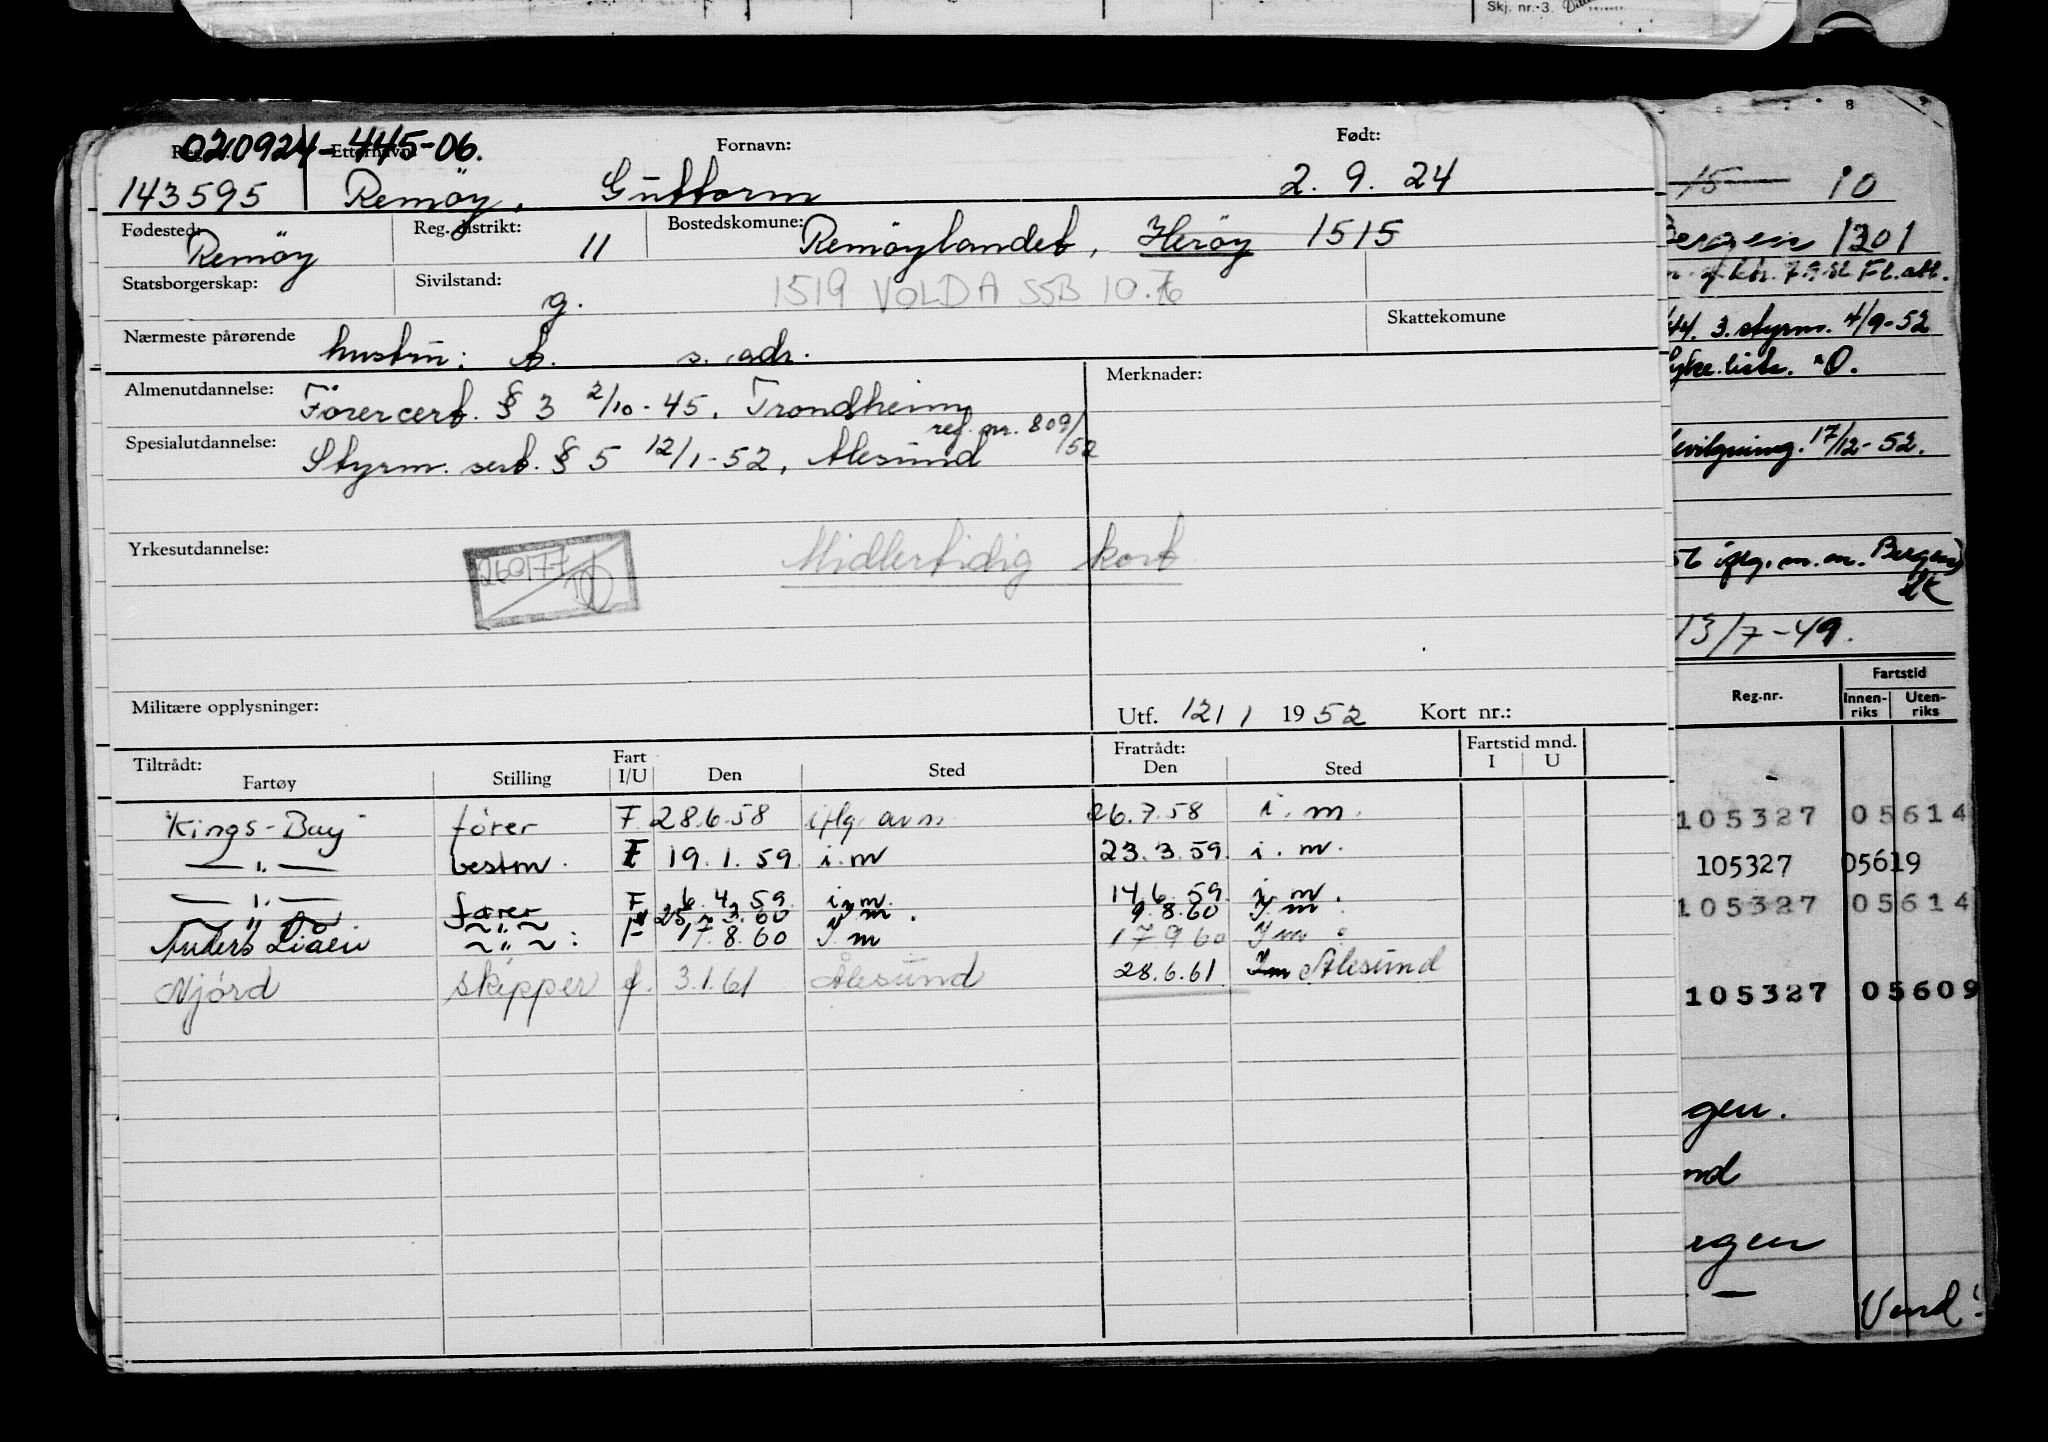 Skj. nr. 3.
020924-445-06.
Fornavn: Født:
143595 Remöy, Guttorm 2. 9. 24
Fødested: Reg. distrikt: Bostedskomune:
Remöy 11 Remöylandet, Heröy 1515
Statsborgerskap: Sivilstand:
g. 1519 VOLDA SSB 10.76
Nærmeste pårørende Skattekomune
hustru: s. adr.
Almenutdannelse: Merknader:
Förercert. § 3 2/10-45, Trondheim
reg. nr. 809/52
Spesialutdannelse:
Styrm. sert. § 5 12/1-52, Ålesund
Yrkesutdannelse:
260177
Midlertidig kort
Militære opplysninger: Utf. 12/1 1952 Kort nr.:
Tiltrådt: Fart Fratrådt: Fartstid mnd.
Fartøy Stilling I/U Den Sted Den Sted I U
"Kings-Bay" fører F 28.6.58 iflg avm 26.7.58 i.m.
— " — bestm. F 19.1.59 i.m 23.3.59. i.m.
— " — fører F 6.4.59 i.m. 14.6.59 i.m.
~ " ~ ~ " ~ F 25.3.60 I m. 9.8.60 I m
Anders Liaen ~ " ~ : F 17.8.60 I m 17 9 60 I m
Njörd skipper f. 3.1.61 Ålesund 28.6.61 Im Ålesund
15 10
Bergen 1201
44. 3. styrm. 4/9-52
17/12-52.
iflg. m.m. Bergen
13/7-49.
Reg.nr. Fartstid
Innen-riks Uten-riks
105327 05614
105327 05619
105327 05614
105327 05609
gen.
nd
rgen
—
Vend!